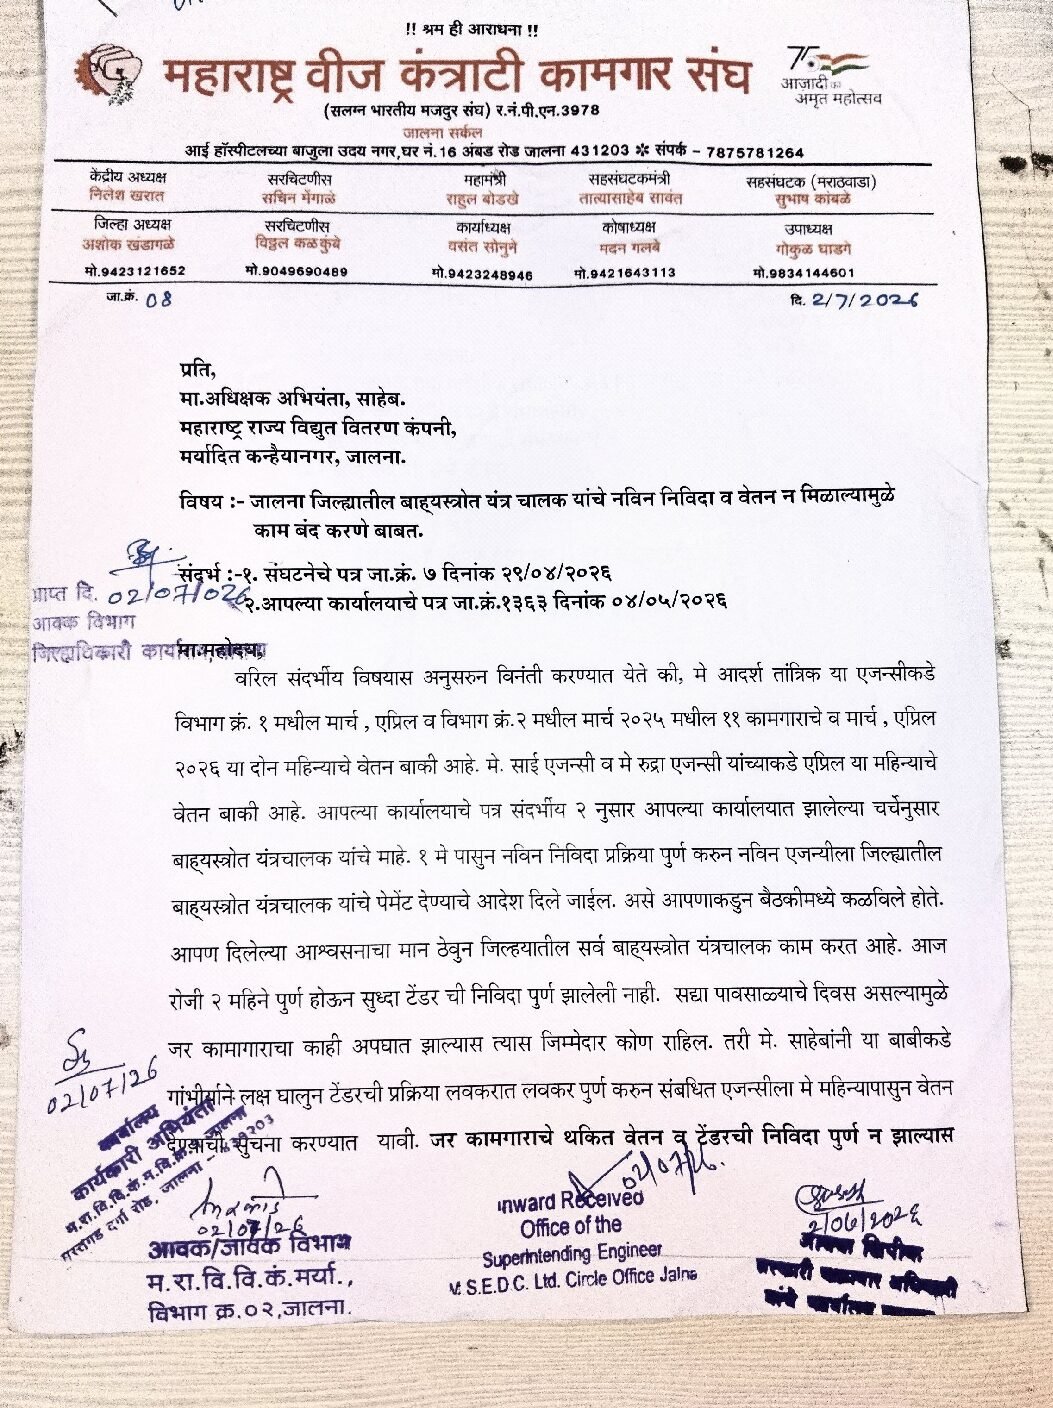 !! श्रम ही आराधना !!
महाराष्ट्र वीज कंत्राटी कामगार संघ
आज़ादी का
अमृत महोत्सव
(सलग्न भारतीय मजदुर संघ) र.नं.पी.एन.3978
जालना सर्कल
आई हॉस्पीटलच्या बाजुला उदय नगर,घर नं.16 अंबड रोड जालना 431203 ✽ संपर्क - 7875781264
केंद्रीय अध्यक्ष सरचिटणीस महामंत्री सहसंघटकमंत्री सहसंघटक (मराठवाडा)
निलेश खरात सचिन मेंगाळे राहुल बोडखे तात्यासाहेब सावंत सुभाष कांबळे
जिल्हा अध्यक्ष सरचिटणीस कार्याध्यक्ष कोषाध्यक्ष उपाध्यक्ष
अशोक खंडागळे विठ्ठल कळकुंबे वसंत सोनुने मदन गलबे गोकुळ घाडगे
मो.9423121652 मो.9049690489 मो.9423248946 मो.9421643113 मो.9834144601
जा.क्रं. 08 दि. 2/7/2026
प्रति,
मा.अधिक्षक अभियंता, साहेब.
महाराष्ट्र राज्य विद्युत वितरण कंपनी,
मर्यादित कन्हैयानगर, जालना.
विषय :- जालना जिल्ह्यातील बाह्यस्त्रोत यंत्र चालक यांचे नविन निविदा व वेतन न मिळाल्यामुळे
काम बंद करणे बाबत.
संदर्भ :-१. संघटनेचे पत्र जा.क्रं. ७ दिनांक २९/०४/२०२६
२.आपल्या कार्यालयाचे पत्र जा.क्रं.१३६३ दिनांक ०४/०५/२०२६
प्राप्त दि. 02/07/026
आवक विभाग
जिल्हाधिकारी कार्यालय,
मा.महोदय,
वरिल संदर्भीय विषयास अनुसरुन विनंती करण्यात येते की, मे आदर्श तांत्रिक या एजन्सीकडे
विभाग क्रं. १ मधील मार्च , एप्रिल व विभाग क्रं.२ मधील मार्च २०२५ मधील ११ कामगाराचे व मार्च , एप्रिल
२०२६ या दोन महिन्याचे वेतन बाकी आहे. मे. साई एजन्सी व मे रुद्रा एजन्सी यांच्याकडे एप्रिल या महिन्याचे
वेतन बाकी आहे. आपल्या कार्यालयाचे पत्र संदर्भीय २ नुसार आपल्या कार्यालयात झालेल्या चर्चेनुसार
बाह्यस्त्रोत यंत्रचालक यांचे माहे. १ मे पासुन नविन निविदा प्रक्रिया पुर्ण करुन नविन एजन्यीला जिल्ह्यातील
बाह्यस्त्रोत यंत्रचालक यांचे पेमेंट देण्याचे आदेश दिले जाईल. असे आपणाकडुन बैठकीमध्ये कळविले होते.
आपण दिलेल्या आश्वसनाचा मान ठेवुन जिल्हयातील सर्व बाह्यस्त्रोत यंत्रचालक काम करत आहे. आज
रोजी २ महिने पुर्ण होऊन सुध्दा टेंडर ची निविदा पुर्ण झालेली नाही. सद्या पावसाळ्याचे दिवस असल्यामुळे
जर कामागाराचा काही अपघात झाल्यास त्यास जिम्मेदार कोण राहिल. तरी मे. साहेबांनी या बाबीकडे
गांभीर्याने लक्ष घालुन टेंडरची प्रक्रिया लवकरात लवकर पुर्ण करुन संबधित एजन्सीला मे महिन्यापासुन वेतन
देण्याची सुचना करण्यात यावी. जर कामगाराचे थकित वेतन व टेंडरची निविदा पुर्ण न झाल्यास
02/07/26
कार्यालय
कार्यकारी अभियंता
म.रा.वि.वि.कं.म.वि.क्र.१,जालना
मस्तगड दर्गा रोड, जालना - ४३१२०३
02/07/26
आवक/जावक विभाग
म.रा.वि.वि.कं.मर्या.,
विभाग क्र.०२,जालना.
02/07/26.
Inward Received
Office of the
Superintending Engineer
M.S.E.D.C. Ltd. Circle Office Jalna
2/06/2026
सरकारी कामगार अधिकारी
यांचे कार्यालय